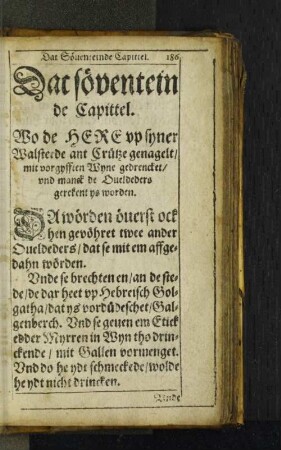 Dat Söventeinde Capittel. 186
Dat söventein
de Capittel.
Wo de HERE vp syner
Walstede ant Crütze genagelt/
mit vorgyfften Wyne gedrencket/
vnd manck de Oueldeders
gerekent ys worden.
DA wörden överst ock
hen gevöhret twee ander
Oueldeders/ dat se mit em affge-
dahn wörden.
Vnde se brechten en/ an de ste-
de/ de dar heet vp Hebreisch Gol-
gatha/ dat ys vordüdeschet/ Gal-
genberch. Vnd se geuen em Etick
edder Myrren in Wyn tho drin-
ckende/ mit Gallen vermenget.
Vnd do he ydt schmeckede/ wolde
he ydt nicht drincken.
Vnde